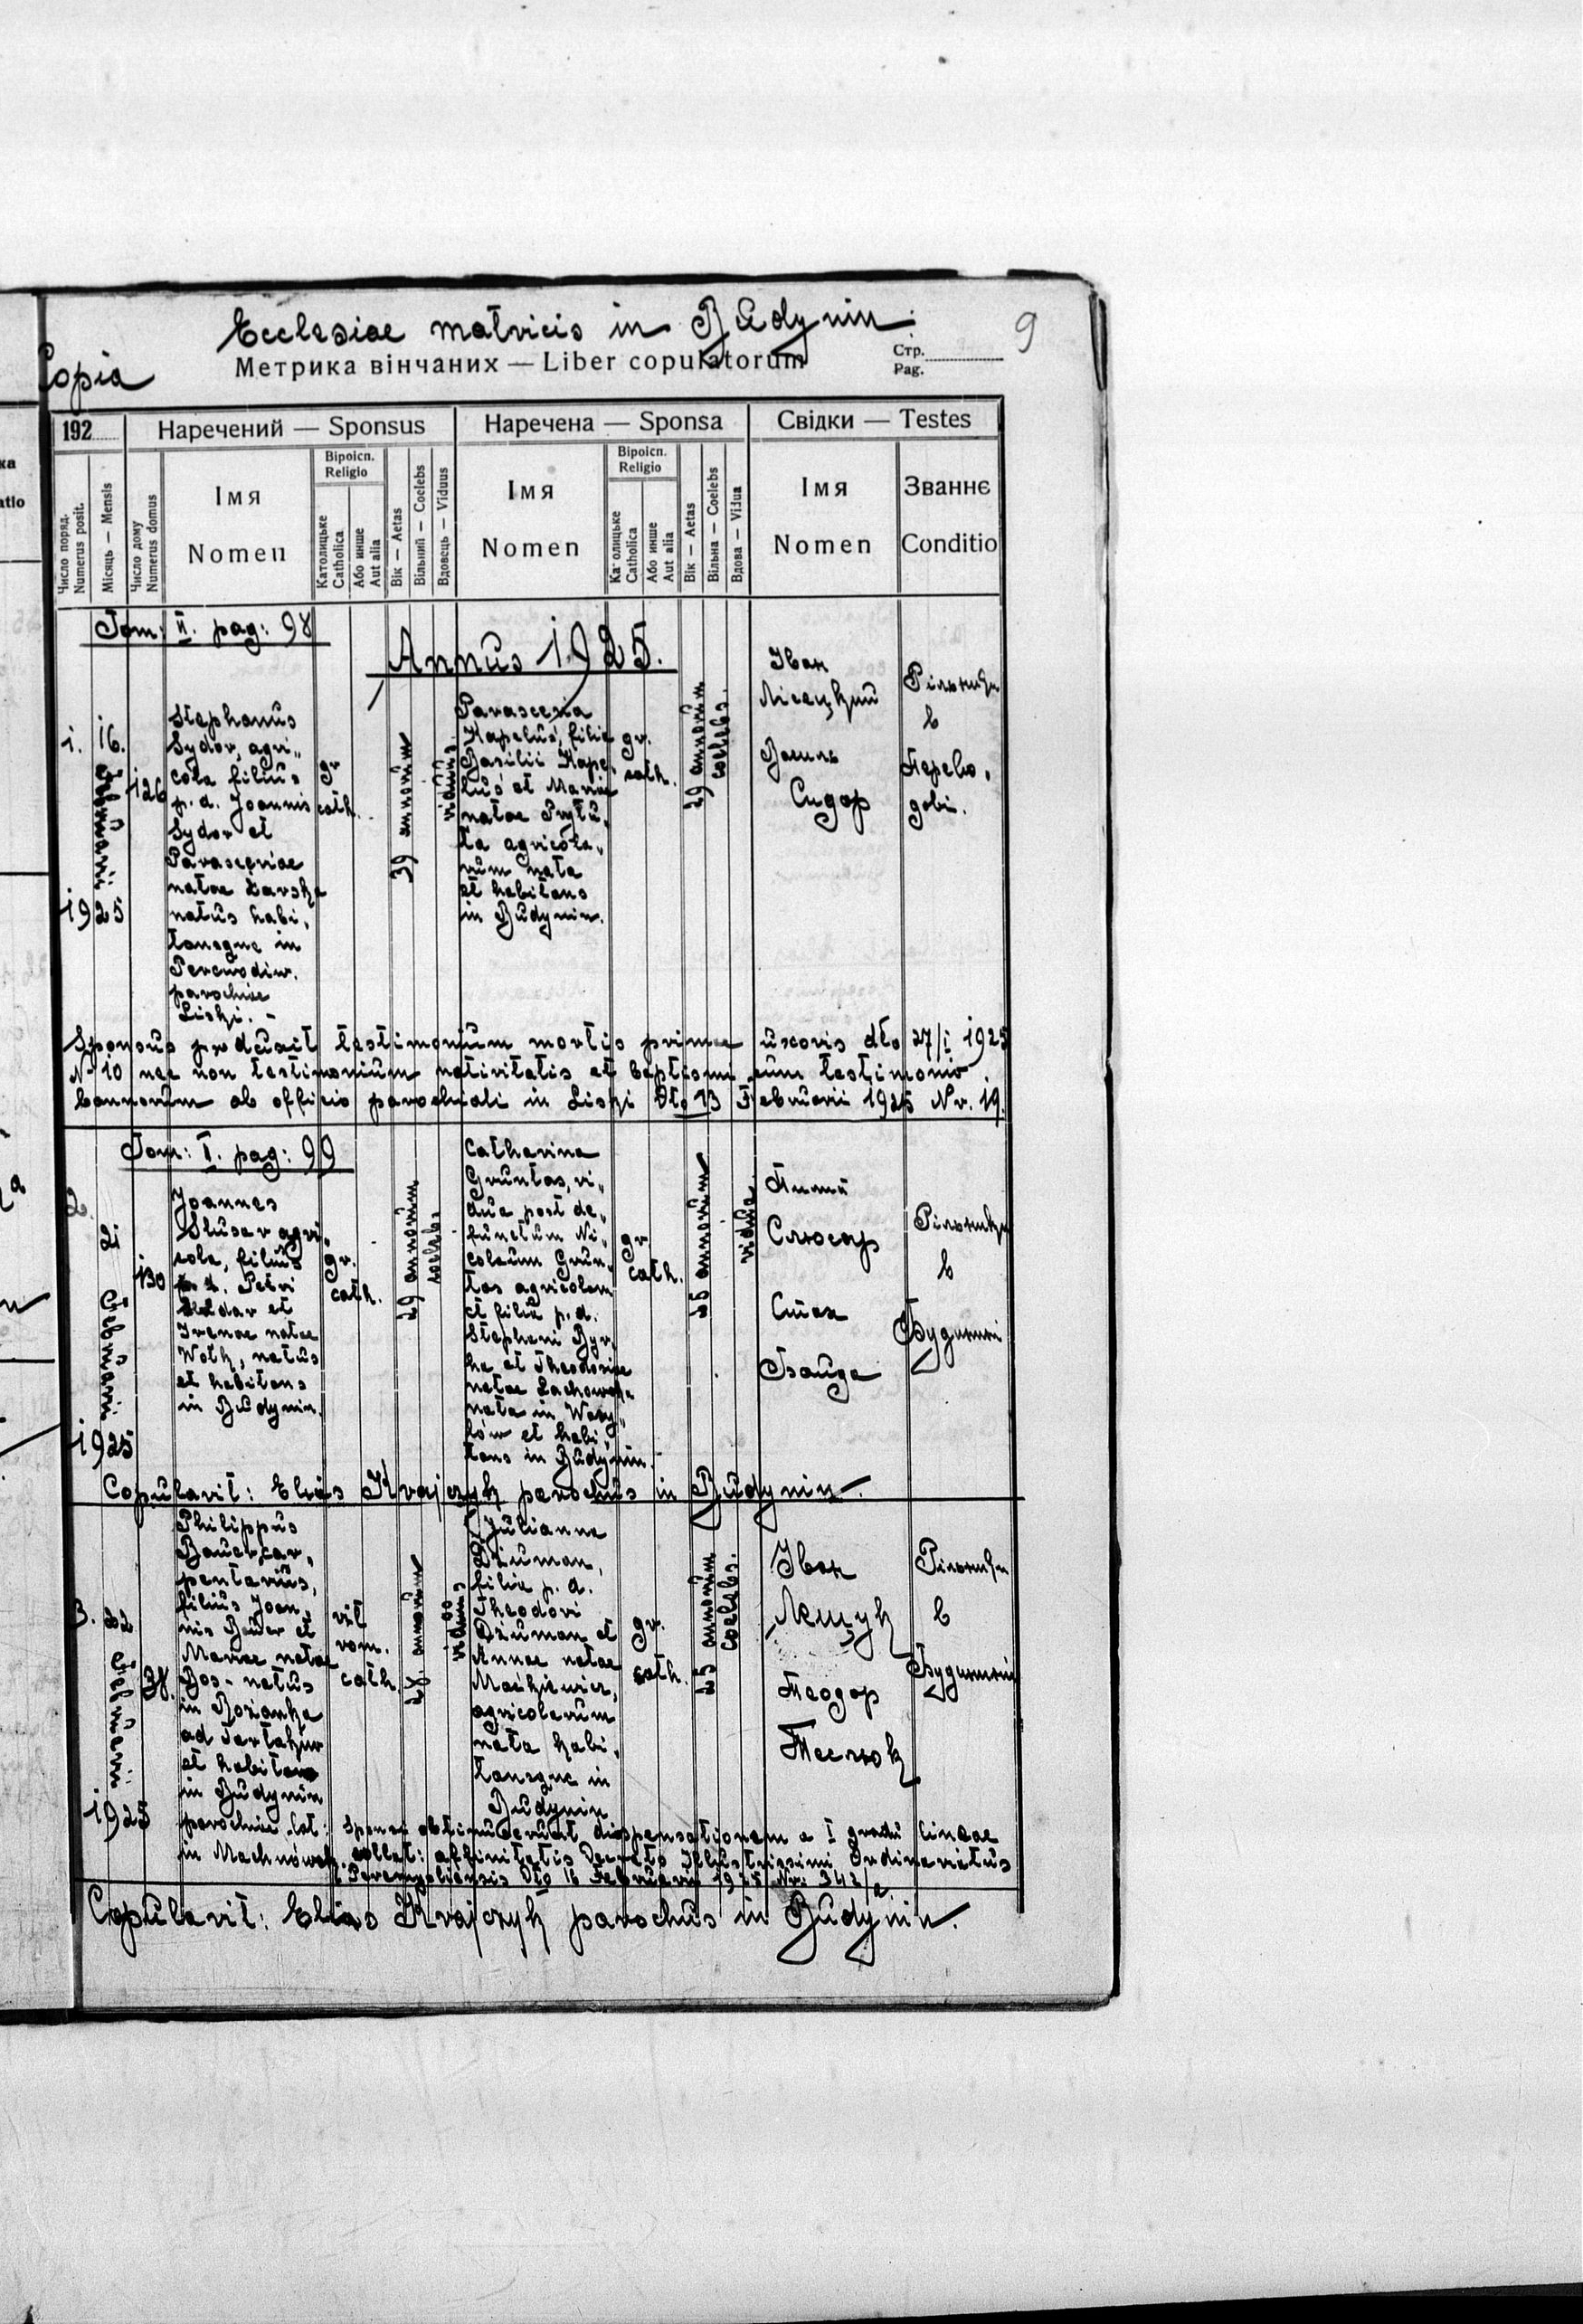 Ecclesiae matricis in Budynin.
9
Copia
Метрика вінчаних — Liber copulatorum
Стр.
Pag.
192
Наречений — Sponsus
Наречена — Sponsa
Свідки — Testes
Число поряд.
Numerus posit.
Місяць — Mensis
Число дому
Numerus domus
Імя
Nomen
Віроісп.
Religio
Католицьке
Catholica
Або инше
Aut alia
Вік — Aetas
Вільний — Coelebs
Вдовець — Viduus
Імя
Nomen
Віроісп.
Religio
Католицьке
Catholica
Або инше
Aut alia
Вік — Aetas
Вільна — Coelebs
Вдова — Vidua
Імя
Nomen
Званнє
Conditio
Tom: II. pag: 98
Annus 1925.
1.
16.
Februarii
1925
126
Stephanus
Sydor, agri„
cola filius
p. d. Joannis
Sydor et
Parasceviae
natae Żarska
natus habi„
tansque in
Perewodiw.
parochiae
Liski. –
gr
cath.
39 annorum
viduus.
Parascevia
Kapeluś, filia
Basilii Kape„
luś et Mariae
natae Prytu„
la agricola„
rum nata
et habitans
in Budynin.
gr.
cath.
29 annorum
coelebs.
Іван
Лісецкий
Василь
Сидор
Рільники
в
Перево„
дові.
Sponsus produxit testimonium mortis primae uxoris dto 27/I 1925
Nr 10 nec non testimonium nativitatis et baptismi cum testimonio
bannorum ab officio parochiali in Liski Dto 13 Februarii 1925 Nr. 19.
Tom: I. pag: 99
2.
21
Februarii
1925
130
Joannes
Slusar agri„
cola, filius
p. d. Petri
et
Irenae natae
Wolk, natus
et habitans
in Budynin.
gr.
cath.
29 annorum
coelebs
Catharina
Gruntas, vi„
dua post de„
functum Ni„
colaum Grun„
tas agricolam
et filia p. d.
Stephani Byr„
ka et Theodosiae
natae Lachowska
nata in Wasy„
lów et habi„
tans in Budynin.
gr
cath.
annorum
vidua.
Слюсар
Стах
Байда
Рільники
в
Будинині
Copulavit: Elias Krajczyk parochus in Budynin.
3.
22
Februarii
1925
38.
Philippus
Bauer, car„
pentarius,
filius Joan„
nis Bauer et
Mariae natae
Bos – natus
in Rozanka
ad Tartakiw
et habitans
in Budynin
parochiae lat:
in Machnówek.
rit
rom.
cath.
28 annorum
viduus
Julianna
Dziuman,
filia p. d.
Theodori
Dziuman et
Annae natae
Maćkiewicz,
agricolarum
nata habi„
tansque in
Budynin
gr.
cath.
25 annorum
coelebs.
Іван
Лещук
Теодор
Теслюк
Рільники
в
Будинині
Sponsi obtinuerunt dispensationem a I gradu lineae
collat: affinitatis Decreto Illustrissimi Ordinariatus
Peremysliensis Dto 16 Februarii 1925 Nr:
Copulavit: Elias Krajczyk parochus in Budynin.